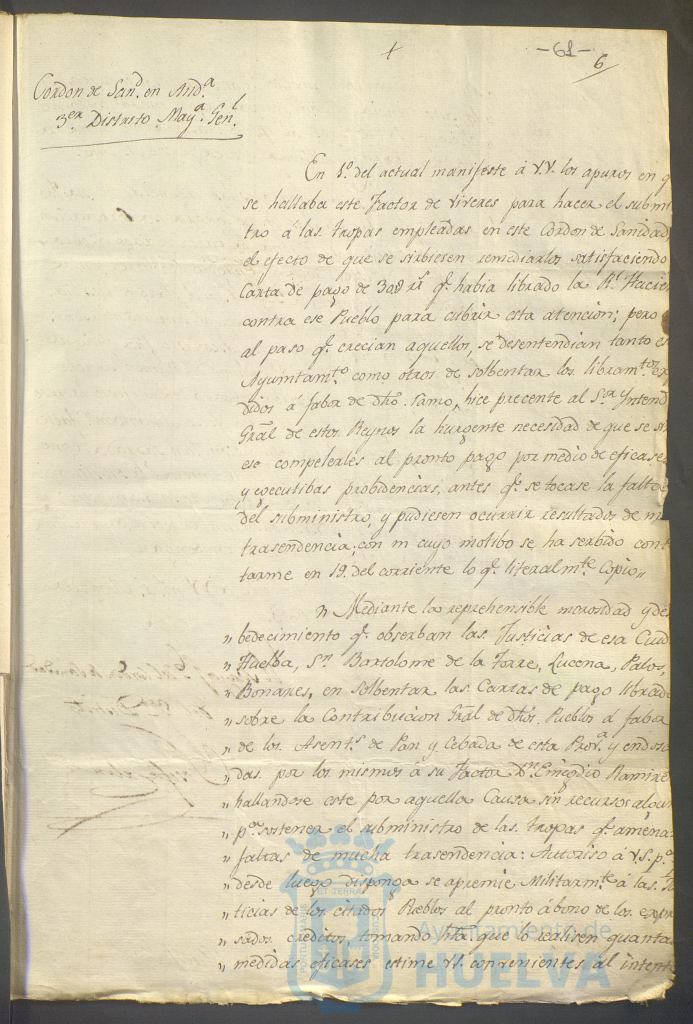 -61-
6
Cordon de San.d en And.a
3.er Distrito May.a Gen.l
En 1.º del actual manifeste á V.V. los apuros en q
se hallaba este Factor de viveres para hacer el submi
tro á las tropas empleadas en este Cordon de Sanidad
el efecto de que se sirbiesen remediarlos satisfaciendo
Carta de pago de r.s q.e habia librado la R.l Hacien
contra ese Pueblo para cubrir esta atencion; pero
al paso q.e crecian aquellos, se desentendian tanto es
Ayuntam.to como otros de solbentar los libram.tos ex
didos á fabor de dho. ramo, hice precente al S.or Yntend
Gral de estos Reynos la hurgente necesidad de que se si
ese compelerles al pronto pago por medio de eficase
y egecutibas probidencias, antes q.e se tocase la falta
del subministro, y pudiesen ocurrir resultados de m
trasendencia; con cuyo motibo se ha serbido con
tarme en 19. del corriente lo q.e literalm.te Copio,,
,, Mediante la reprehensible morosidad y de
,, bedecimiento q.e obserban las Justicias de esa Ciud
,, Huelba, S.n Bartolome de la Torre, Lucena, Palos,
,, Bonares, en solbentar las Cartas de pago librad
,, sobre la Contribucion Gral de dhos. Pueblos á fabor
,, de los Asent.s de Pan y Cebada de esta Prov.a y endosa
,, das por los mismos á su Factor D.n Emigdio Ramire
,, hallandose este por aquella Causa sin recursos algun
,, p.a sostener el subministro de las tropas q.e amena
,, faltas de mucha trasendencia: Autoriso á V.S. p.a
,, desde luego disponga se apremie Militarm.te á las
,, ticias de los citados Pueblos al pronto abono de los expre
,, sados creditos, tomando hta que lo realisen quanta
,, medidas eficases estime V.S. convenientes al intent
Ayuntamiento de
HUELVA